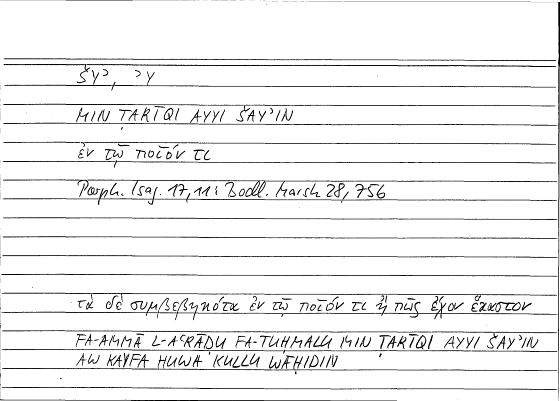 ŠYʾ, ʾY
MIN ṬARĪQI AYYI ŠAYʾIN
ἐν τῷ ποῖόν τι
Porph. Isag. 17,11: Bodl. Marsh 28, 756
τὰ δὲ συμβεβηκότα ἐν τῷ ποῖόν τι ἢ πῶς ἔχον ἕκαστον
FA-AMMĀ L-AʿRĀḌU FA-TUḤMALU MIN ṬARĪQI AYYI ŠAYʾIN
AW KAYFA HUWA KULLU WĀḤIDIN